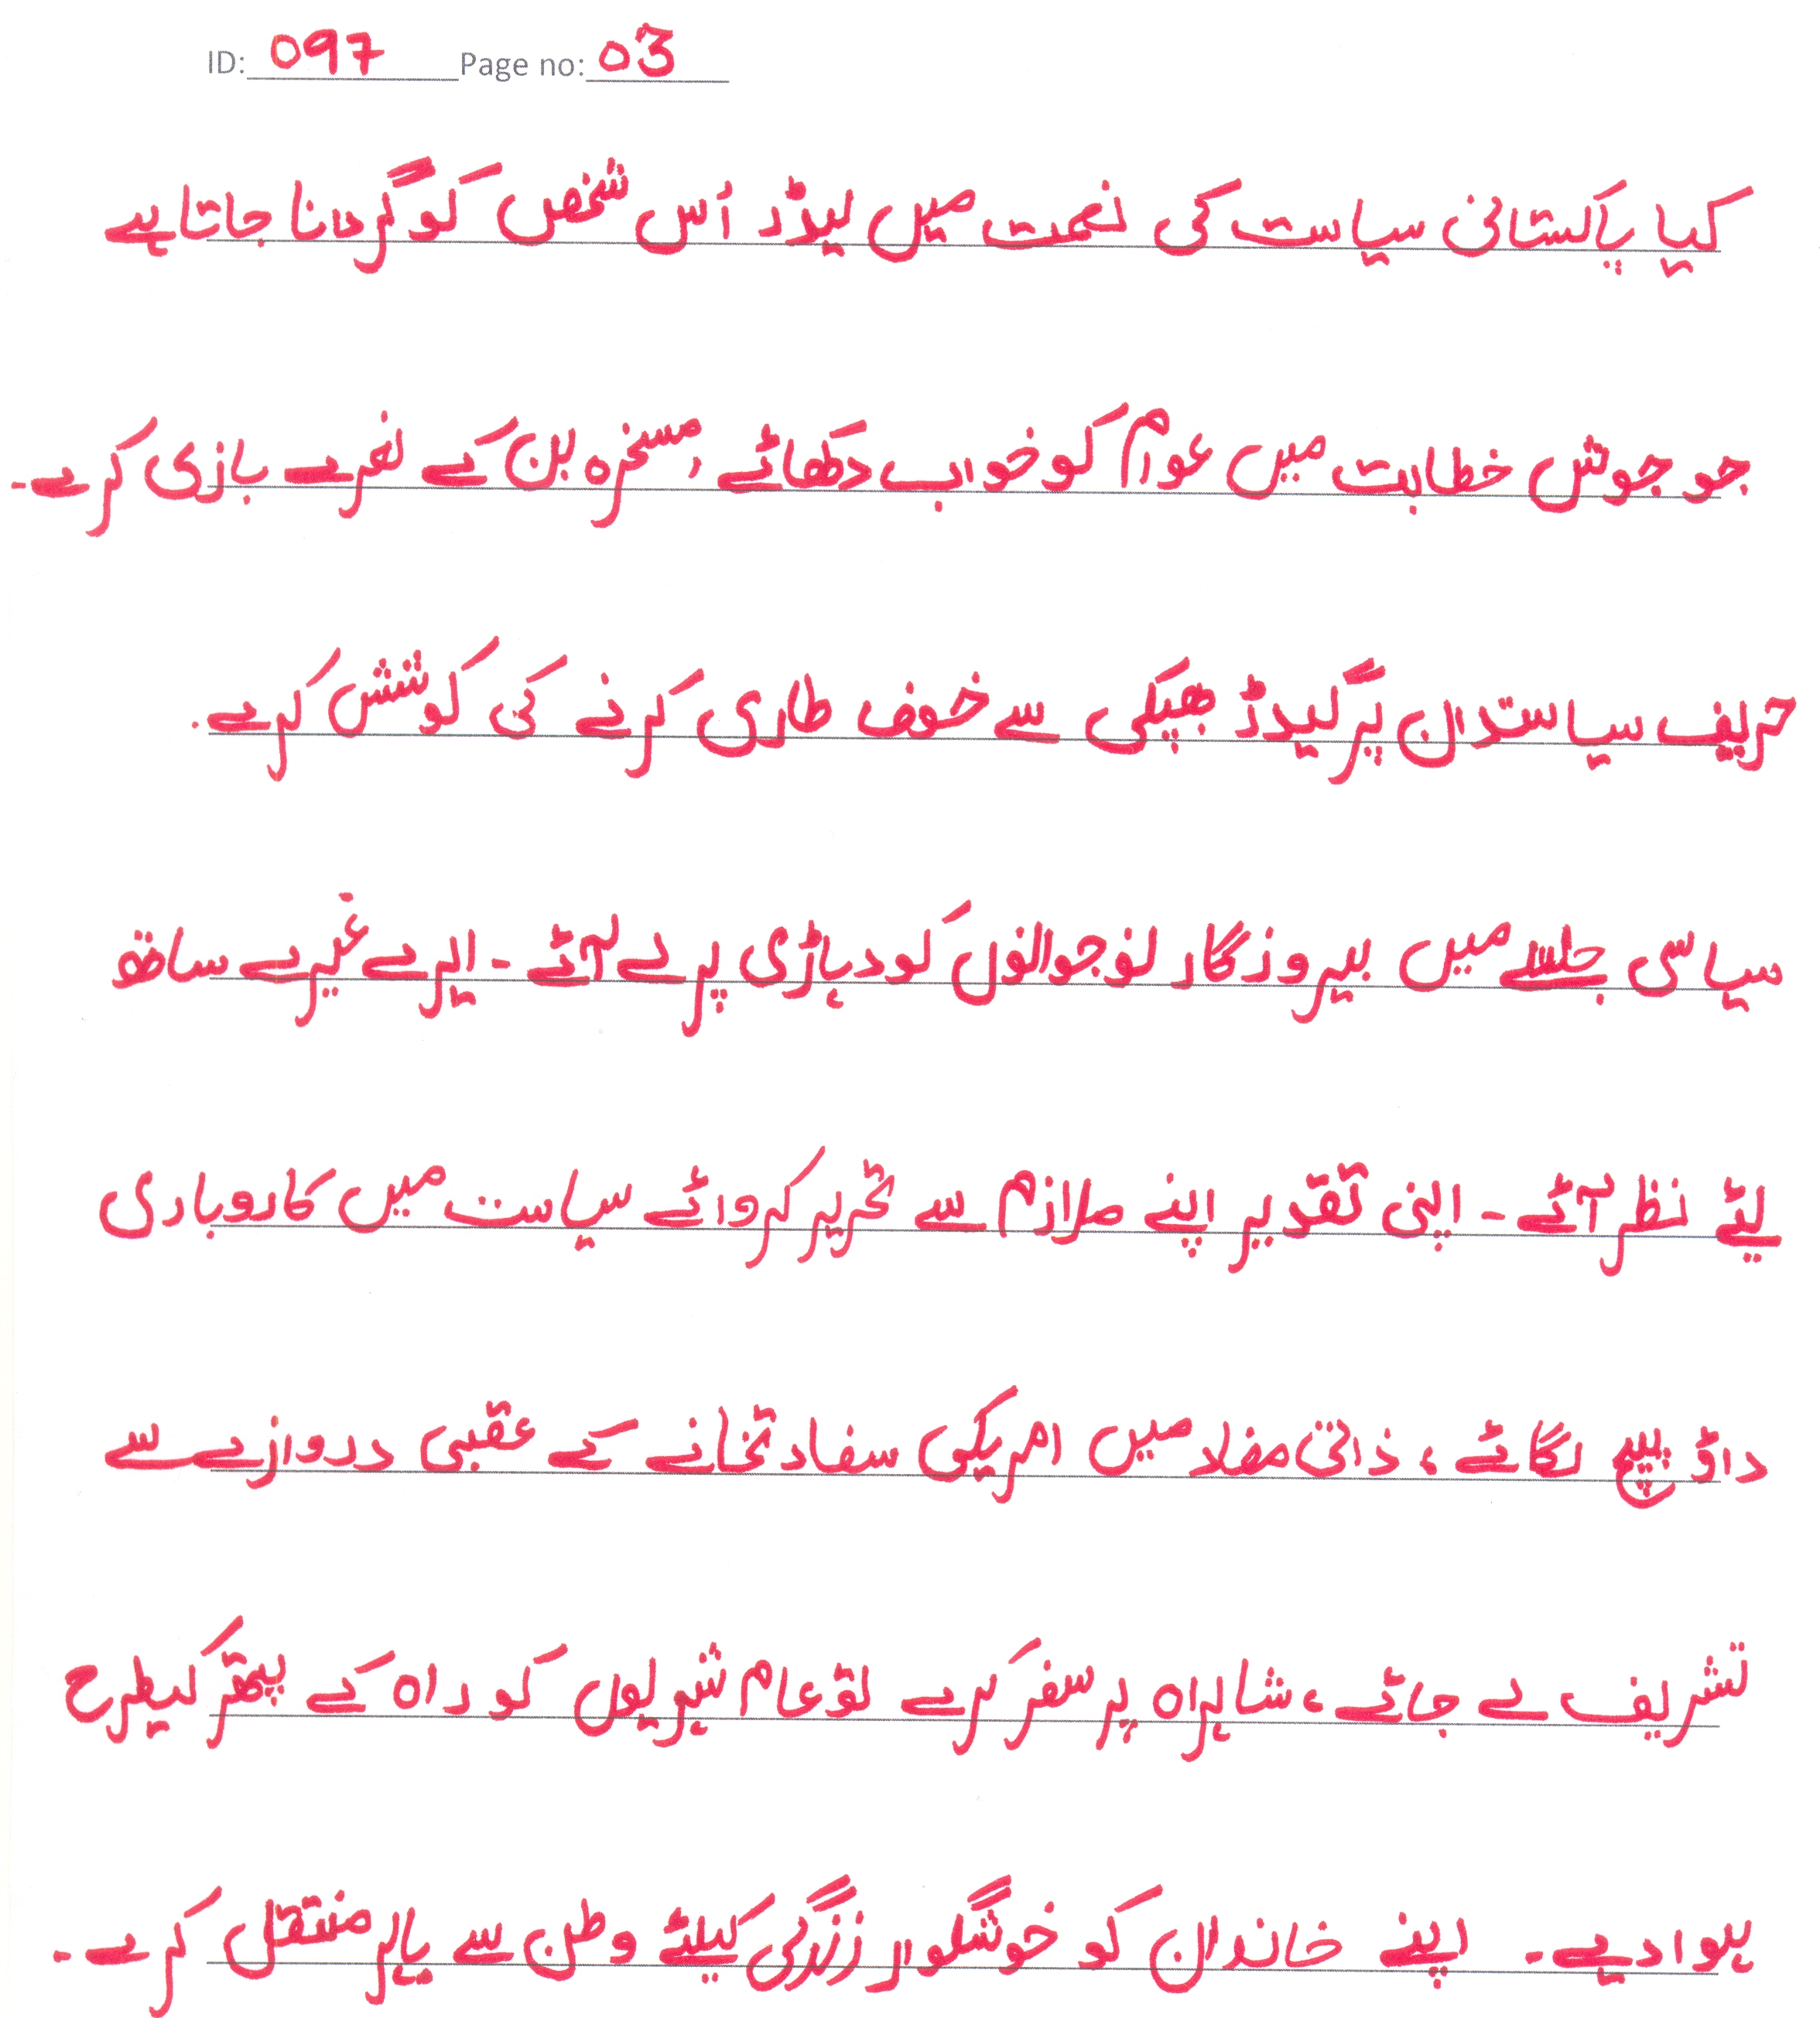 ID: 097 Page no: 03
کیا پاکستانی سیاست کی لغت میں لیڈر اُس شخص کو گردانا جاتا ہے
جو جوش خطابت میں عوام کو خواب دکھائے، مسخرہ بن کے نعرے بازی کرے۔
حریف سیاستدان پر گیدڑ بھپکی سے خوف طاری کرنے کی کوشش کرے۔
سیاسی جلسے میں بیروزگار نوجوانوں کو دہاڑی پر لے آئے۔ ایرے غیرے ساتھ
لئے نظر آئے۔ اپنی تقدیر اپنے ملازم سے تحریر کروائے سیاست میں کاروباری
داؤ پیچ لگائے، ذاتی مفاد میں امریکی سفارتخانے کے عقبی دروازے سے
تشریف لے جائے، شاہراہ پر سفر کرے تو عام شہریوں کو راہ کے پتھر کیطرح
ہٹوا دے۔ اپنے خاندان کو خوشگوار زندگی کیلئے وطن سے باہر منتقل کرے۔